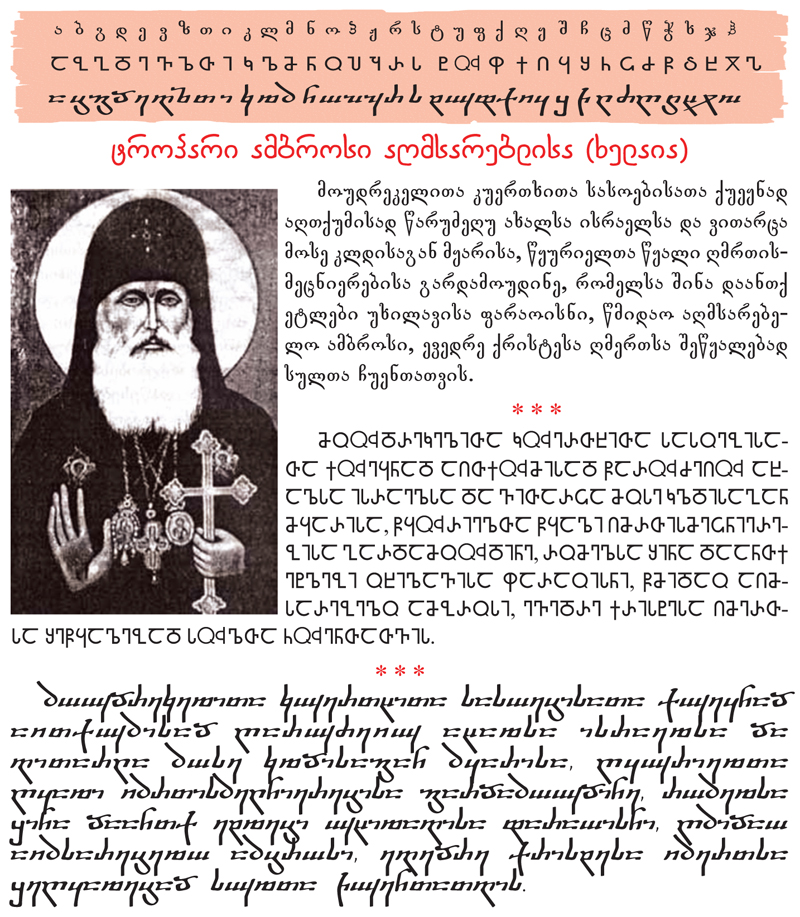 ა ბ გ დ ე ვ ზ თ ი კ ლ მ ნ ო პ ჟ რ ს ტ უ ფ ქ ღ ყ შ ჩ ც ძ წ ჭ ხ ჯ ჰ
Ⴀ Ⴁ Ⴂ Ⴃ Ⴄ Ⴅ Ⴆ Ⴇ Ⴈ Ⴉ Ⴊ Ⴋ Ⴌ Ⴍ Ⴎ Ⴏ Ⴐ Ⴑ Ⴒ ႭჃ Ⴔ Ⴕ Ⴖ Ⴗ Ⴘ Ⴙ Ⴚ Ⴛ Ⴜ Ⴝ Ⴞ Ⴟ Ⴠ
ⴀ ⴁ ⴂ ⴃ ⴄ ⴅ ⴆ ⴇ ⴈ ⴉ ⴊ ⴋ ⴌ ⴍ ⴎ ⴏ ⴐ ⴑ ⴒ ⴍⴣ ⴔ ⴕ ⴖ ⴗ ⴘ ⴙ ⴚ ⴛ ⴜ ⴝ ⴞ ⴟ ⴠ
ტროპარი ამბროსი აღმსარებლისა (ხელაია)
მოუდრეკელითა კუერთხითა სასოებისათა ქუეყნად
აღთქუმისად წარუძეღუ ახალსა ისრაელსა და ვითარცა
მოსე კლდისაგან მყარისა, წყურიელთა წყალი ღმრთის-
მეცნიერებისა გარდამოუდინე, რომელსა შინა დაანთქ
ეტლები უხილავისა ფარაოისნი, წმიდაო აღმსარებე-
ლო ამბროსი, ევედრე ქრისტესა ღმერთსა შეწყალებად
სულთა ჩუენთათვის.
* * *
ႫႭႭჃႣႰႤႩႤႪႨႧႠ ႩႭჃႤႰႧႾႨႧႠ ႱႠႱႭႤႡႨႱႠ-
ႧႠ ႵႭჃႤႷႬႠႣ ႠႶႧႵႭჃႫႨႱႠႣ ႼႠႰႭჃႻႤႶႭჃ ႠႾ-
ႠႪႱႠ ႨႱႰႠႤႪႱႠ ႣႠ ႥႨႧႠႰႺႠ ႫႭႱႤ ႩႪႣႨႱႠႢႠႬ
ႫႷႠႰႨႱႠ, ႼႷႭჃႰႨႤႪႧႠ ႼႷႠႪႨ ႶႫႰႧႨႱႫႤႺႬႨႤႰႤ-
ႡႨႱႠ ႢႠႰႣႠႫႭႭჃႣႨႬႤ, ႰႭႫႤႪႱႠ ႸႨႬႠ ႣႠႠႬႧႵ
ႤႲႪႤႡႨ ႭႾႨႪႠႥႨႱႠ ႴႠႰႠႭႨႱႬႨ, ႼႫႨႣႠႭ ႠႶႫ-
ႱႠႰႤႡႤႪႭ ႠႫႡႰႭႱႨ, ႤႥႤႣႰႤ ႵႰႨႱႲႤႱႠ ႶႫႤႰႧ-
ႱႠ ႸႤႼႷႠႪႤႡႠႣ ႱႭჃႪႧႠ ႹႭჃႤႬႧႠႧႥႨႱ.
* * *
ⴋⴍⴍⴣⴃⴐⴄⴉⴄⴊⴈⴇⴀ ⴉⴍⴣⴄⴐⴇⴞⴈⴇⴀ ⴑⴀⴑⴍⴄⴁⴈⴑⴀⴇⴀ ⴕⴍⴣⴄⴗⴌⴀⴃ
ⴀⴖⴇⴕⴍⴣⴋⴈⴑⴀⴃ ⴜⴀⴐⴍⴣⴛⴄⴖⴍⴣ ⴀⴞⴀⴊⴑⴀ ⴈⴑⴐⴀⴄⴊⴑⴀ ⴃⴀ
ⴅⴈⴇⴀⴐⴚⴀ ⴋⴍⴑⴄ ⴉⴊⴃⴈⴑⴀⴂⴀⴌ ⴋⴗⴀⴐⴈⴑⴀ, ⴜⴗⴍⴣⴐⴈⴄⴊⴇⴀ
ⴜⴗⴀⴊⴈ ⴖⴋⴐⴇⴈⴑⴋⴄⴚⴌⴈⴄⴐⴄⴁⴈⴑⴀ ⴂⴀⴐⴃⴀⴋⴍⴍⴣⴃⴈⴌⴄ, ⴐⴍⴋⴄⴊⴑⴀ
ⴘⴈⴌⴀ ⴃⴀⴀⴌⴇⴕ ⴄⴒⴊⴄⴁⴈ ⴍⴣⴞⴈⴊⴀⴅⴈⴑⴀ ⴔⴀⴐⴀⴍⴈⴑⴌⴈ, ⴜⴋⴈⴃⴀⴍ
ⴀⴖⴋⴑⴀⴐⴄⴁⴄⴊⴍ ⴀⴋⴁⴐⴍⴑⴈ, ⴄⴅⴄⴃⴐⴄ ⴕⴐⴈⴑⴒⴄⴑⴀ ⴖⴋⴄⴐⴇⴑⴀ
ⴘⴄⴜⴗⴀⴊⴄⴁⴀⴃ ⴑⴍⴣⴊⴇⴀ ⴙⴍⴣⴄⴌⴇⴀⴇⴅⴈⴑ.